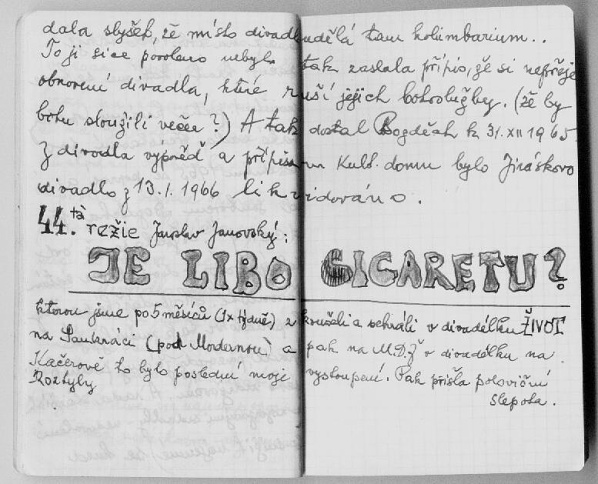 dala slyšet, že místo divadla udělá tam kolumbarium..
To jí sice povoleno nebylo tak zaslala přípis, že si nepřeje
obnovení divadla, které ruší jejich bohoslužby. (že by
bohu sloužili večer?) A tak dostal Bogděch k 31. XII 1965
z divadla výpověď a přípisem Kult. domu bylo Jiráskovo
divadlo z 13. 1. 1966 likvidováno.
44.tá režie Jaroslav Janovský:
JE LIBO CIGARETU?
kterou jsme po 5 měsíců (1x týdně) zkoušeli a sehráli v divadélku ŽIVOT
na Santenáci (pod Modernou) a pak na M.D.Ž v divadélku na
Kačerově to bylo poslední moje vystoupení. Pak přišla poloviční
Roztyly slepota.